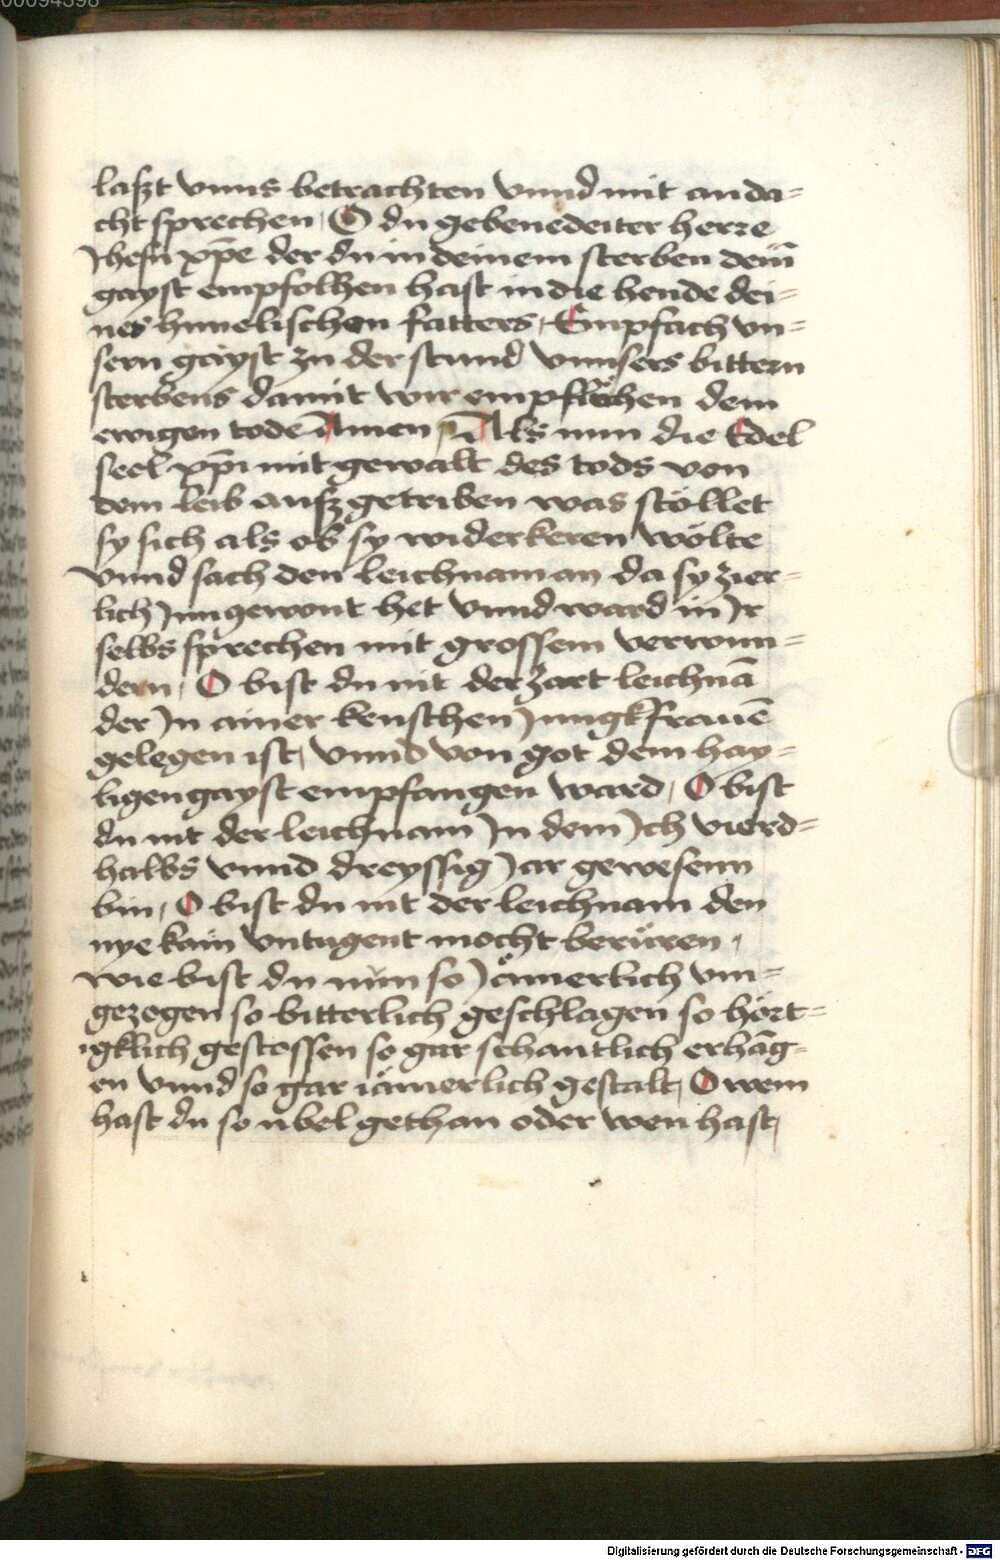 00094398
laßt vnns betrachten vnnd mit anda=
cht sprechen, O du gebenedeiter herre
Jhesu xp̄e der du in deinem sterben dein̄
gayst empfolhen hast in die hende dei=
nes himelischen fatters, Empfach vn=
sern gayst zu der stund vnnsers bittern
sterbens damit wir empfliehen dem
ewigen tode Amen, Als nun die Edel
seel xp̄i mit gewalt des tods von
dem leib außgetriben was stöllet
sy sich als ob sy widerkeren wölte
vnnd sach den leichnam an da sy zier=
lich Jnn gewont het vnnd ward in Jr
selbs sprechen mit grossem verwun=
dern, O bist du nit der zart leichnā
der Jn ainer keuschen Jungkfrauē
gelegen ist, vnnd von got dem hay=
ligen gayst empfangen ward, O bist
du nit der leichnam Jn dem Jch vierd=
halbs vnnd dreyssig Jar gewesenn
bin, O bist du nit der leichnam den
nye kain vntugent mocht berüren,
wie bist du nun so Jämerlich vm=
gezogen so bitterlich geschlagen so hört=
igklich gestossen so gar schantlich erhāg=
en vnnd so gar iämerlich gestalt, O wem
hast du so übel gethan oder wen hast,
Digitalisierung gefördert durch die Deutsche Forschungsgemeinschaft - DFG